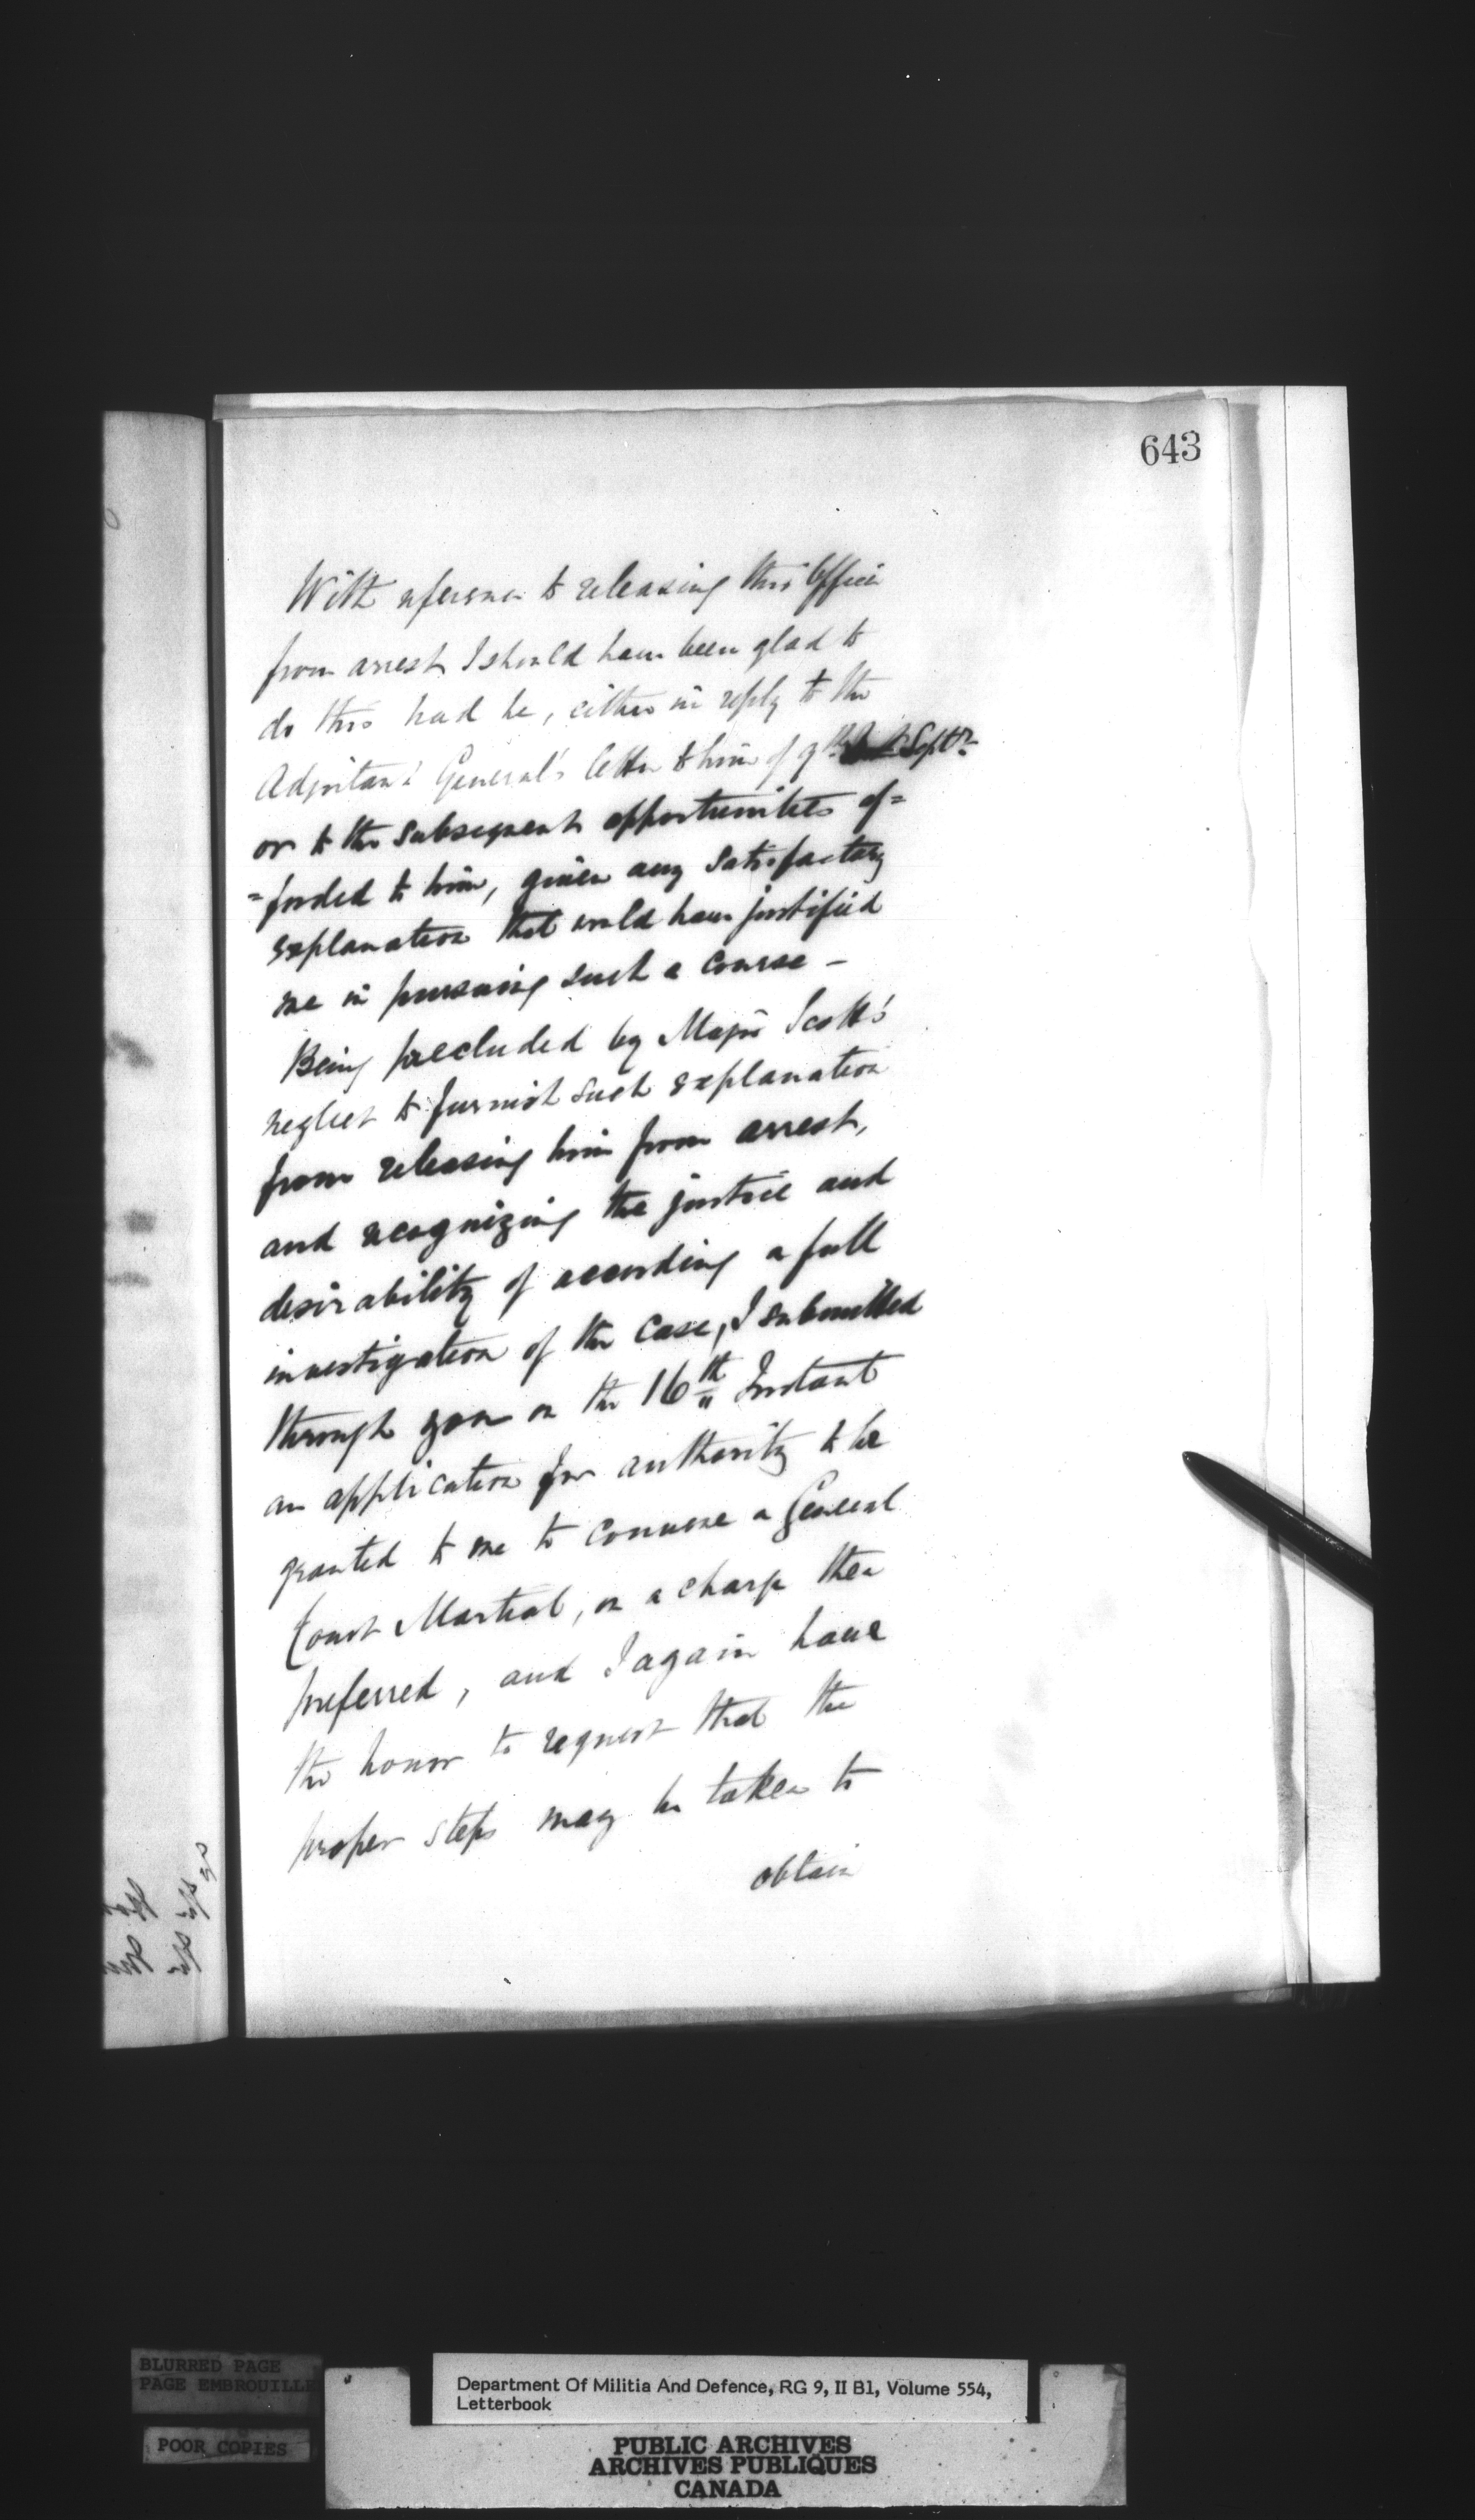 643
With reference to releasing this Officer
from arrest I should have been glad to
do this had he, either in reply to the
Adjutant General's letter to him of 9th Septr
or to the subsequent opportunities af=
=forded to him, given any satisfactory
explanation that would have justified
me in pursuing such a course –
Being precluded by Major Scott's
neglect to furnish such explanation
from releasing him from arrest,
and recognizing the justice and
desirability of according a full
investigation of the case, I submitted
through you on the 16th Instant
an application for authority to be
granted to me to convene a General
Court Martial, on a charge then
preferred, and I again have
the honor to request that the
proper steps may be taken to
obtain
BLURRED PAGE
PAGE EMBROUILLE
POOR COPIES
Department Of Militia And Defence, RG 9, II B1, Volume 554,
Letterbook
PUBLIC ARCHIVES
ARCHIVES PUBLIQUES
CANADA